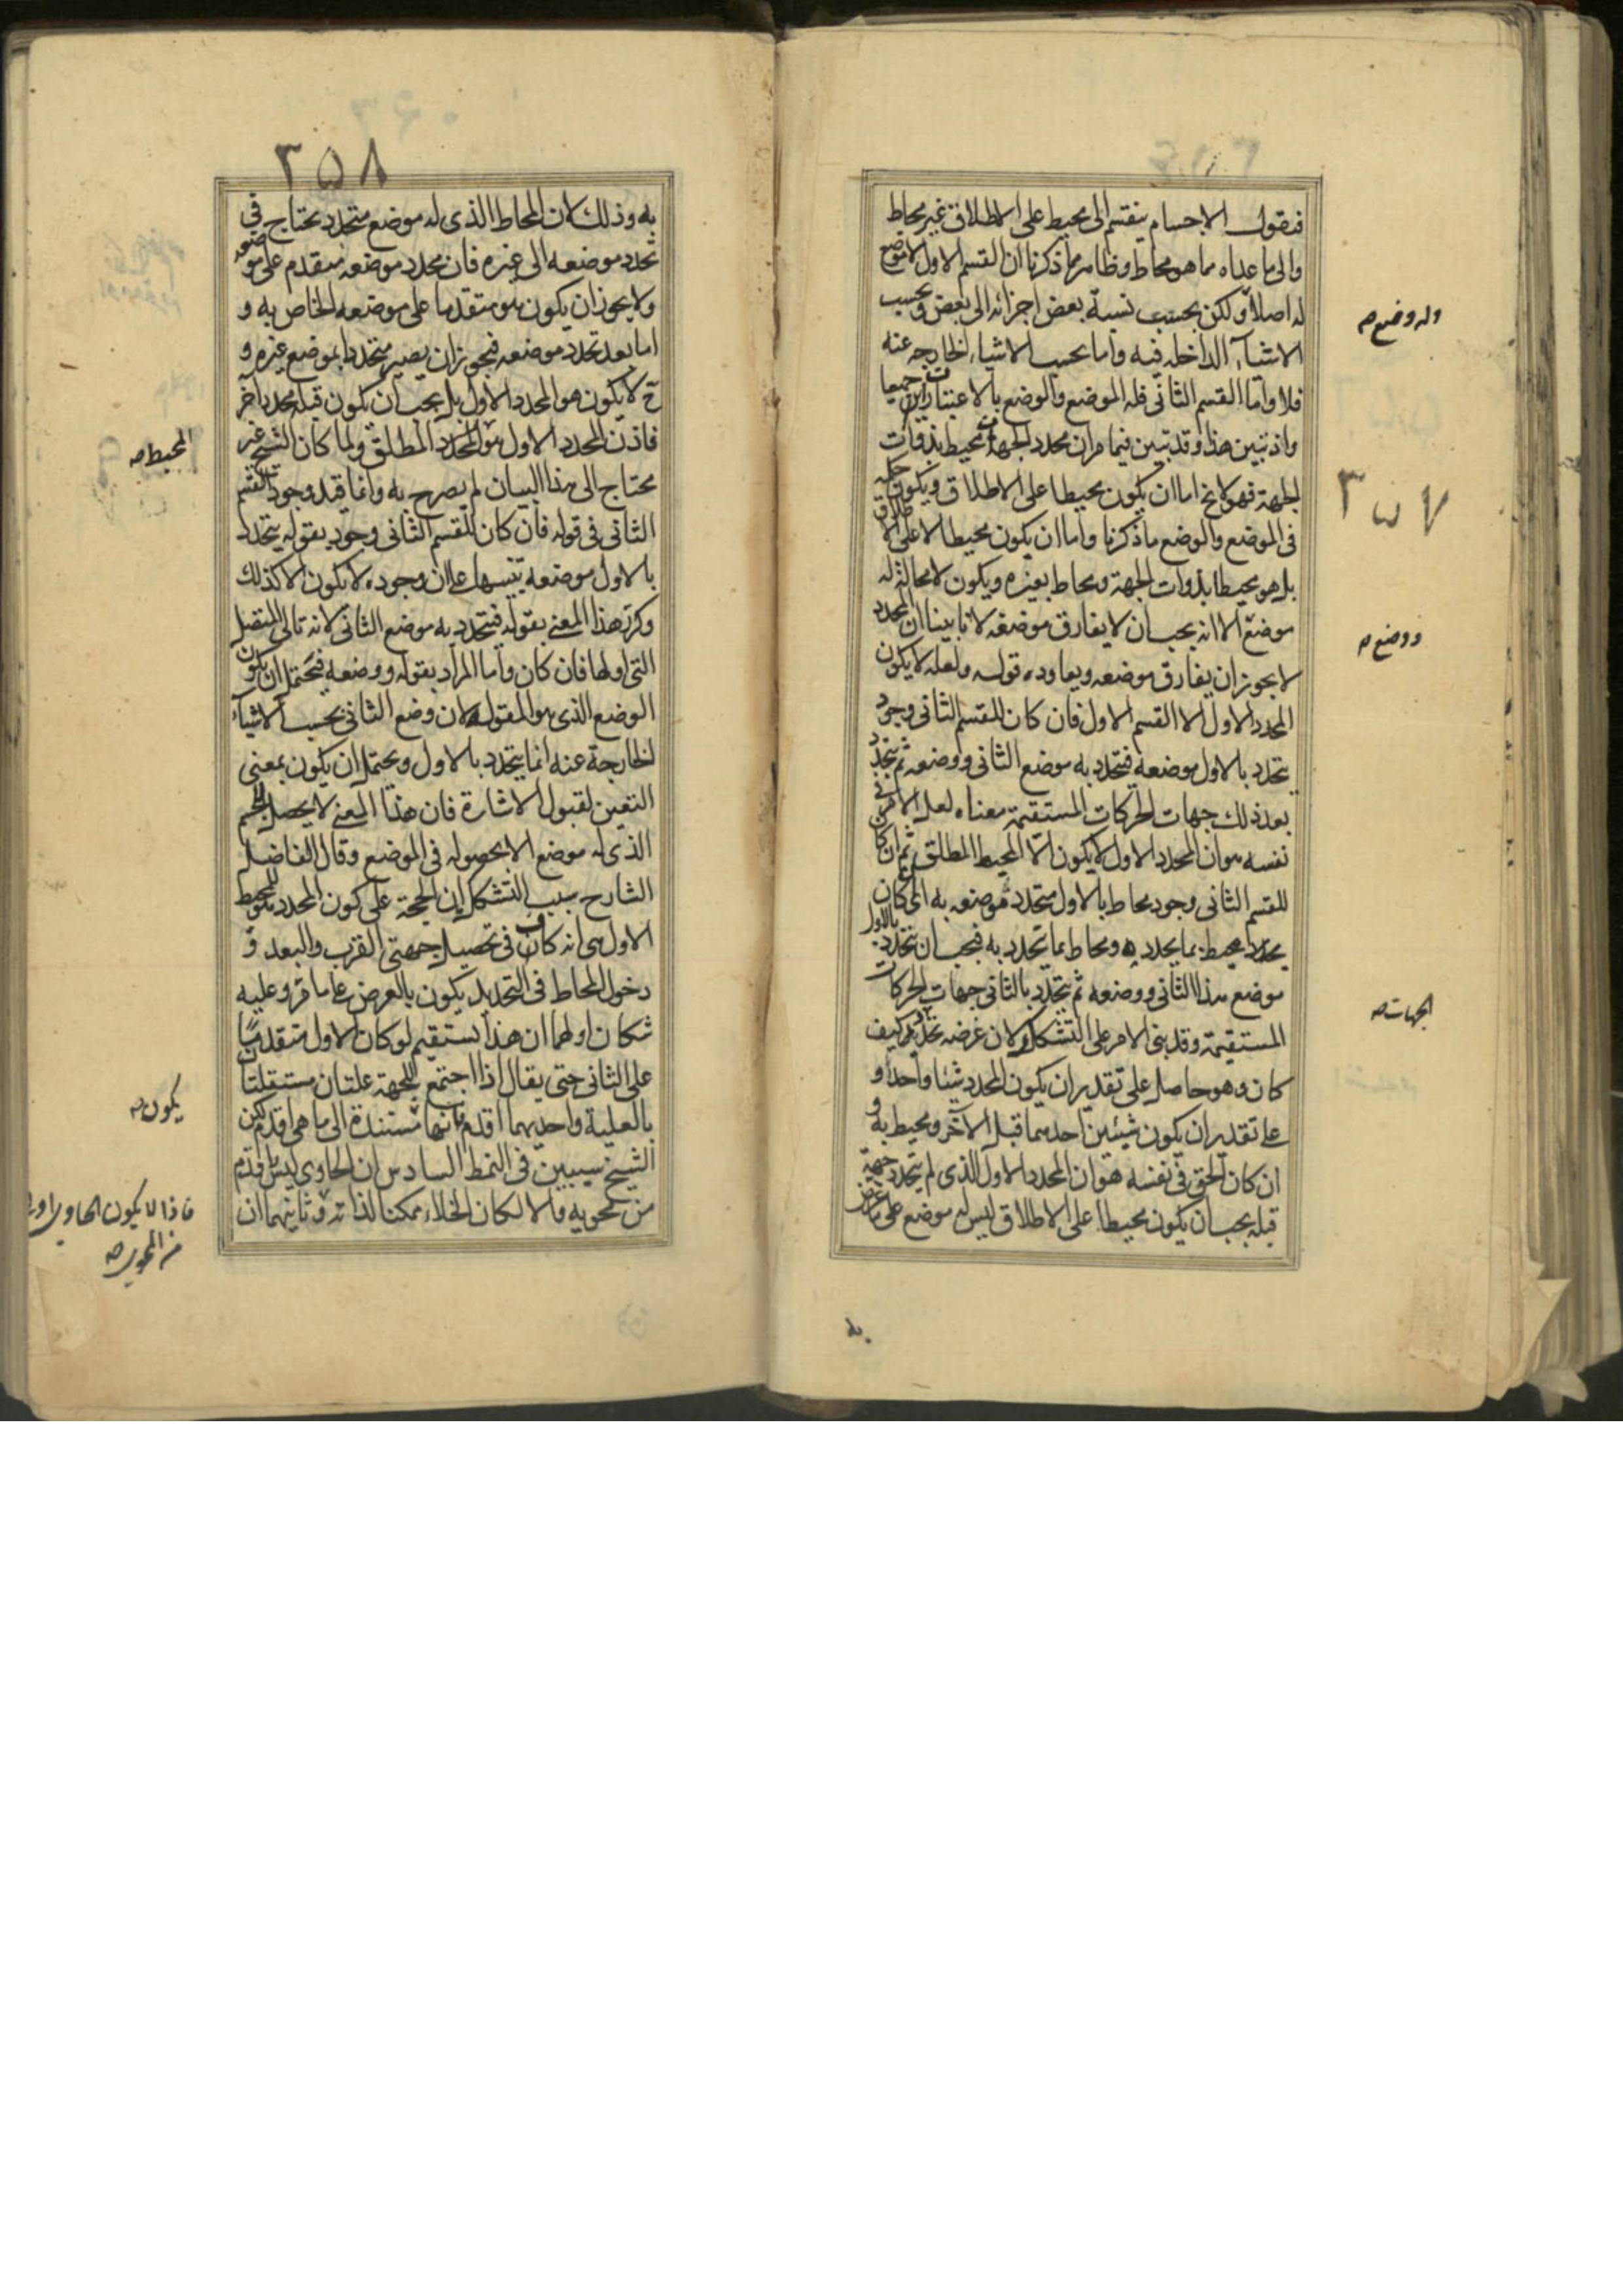 فنقول الاجسام ينقسم الى محيط على الاطلاق غير محاط
والى ما عداه مما هو محاط وظاهر مما ذكرنا ان القسم الاول لا موضع
له اصلا ولكن بحسب نسبة بعض اجزائه الى بعض وبحسب
الاشياء الداخله فيه واما بحسب الاشياء الخارجه عنه
فلا واما القسم الثانى فله الموضع والوضع بالاعتبارات جميعا
واذ تبين هذا وقد تبين فيما مر ان محدد الجهات محيط بذوات
الجهة فهو لا يخ اما ان يكون محيطا على الاطلاق ويكون حكمه
فى الموضع والوضع ما ذكرنا واما ان يكون محيطا لا على الاطلاق
بل هو محيط بذوات الجهة ومحاط بغيره ويكون لا محالة له
موضع الا انه يجب ان لا يفارق موضعه لانا بينا ان المحدد
لا يجوز ان يفارق موضعه ويعاوده قوله ولعله لا يكون
المحدد الاول الا القسم الاول فان كان للقسم الثانى وجود
يتحدد بالاول موضعه فيتحدد به موضع الثانى ووضعه ثم يتحدد
بعد ذلك جهات الحركات المستقيمة معناه لعل الامر فى
نفسه هو ان المحدد الاول لا يكون الا المحيط المطلق ثم ان كان
للقسم الثانى وجود محاط بالاول متحدد موضعه به اى كان
محدد محيط بما يحدد به ومحاط بما تحدد به فيجب ان يتحدد بالاول
موضع هذا الثانى ووضعه ثم يتحدد بالثانى جهات الحركات
المستقيمة وقد بنى الامر على التشكك لان غرضه تحديد كيف
كان وهو حاصل على تقدير ان يكون المحدد شيئا واحدا و
على تقدير ان يكون شيئين احدهما قبل الآخر ومحيط به و
ان كان الحق فى نفسه هو ان المحدد الاول الذى لم يتحدد جهة
قبله يجب ان يكون محيطا على الاطلاق ليس له موضع على ما
به
وله وضع صه
٣٥٧
ووضع صه
الجهات صه
٣٥٨
به وذلك لان المحاط الذى له موضع متحدد يحتاج فى
تحدد موضعه الى غيره فان محدد موضعه متقدم على موضعه
ولا يجوز ان يكون هو متقدما على موضعه الخاص به و
اما بعد تحدد موضعه فيجوز ان يصير متحددا بموضع غيره و
ح لا يكون هو المحدد الاول بل يجب ان يكون قبله محدد آخر
فاذن المحدد الاول هو المحدد المطلق ولما كان الشيخ غير
محتاج الى هذا البيان لم يصرح به وانما قيد وجود القسم
الثانى فى قوله فان كان للقسم الثانى وجود بقوله يتحدد
بالاول موضعه تنبيها على ان وجوده لا يكون الا كذلك
وكرر هذا المعنى بقوله فيتحدد به موضع الثانى لانه تالى المتصلة
التى اولها فان كان واما المراد بقوله ووضعه فيحتمل ان يكون
الوضع الذى هو المقولة لان وضع الثانى بحسب الاشياء
الخارجة عنه انما يتحدد بالاول ويحتمل ان يكون بمعنى
التعين لقبول الاشارة فان هذا المعنى لا يحصل للجسم
الذى له موضع الا بحصوله فى الموضع وقال الفاضل
الشارح سبب التشكك ان الحجة على كون المحدد هو المحيط
الاول هى انه كاف فى تحصيل جهتى القرب والبعد و
دخول المحاط فى التحديد يكون بالعرض على ما مر وعليه
شكان اولهما ان هذا يستقيم لو كان الاول متقدما
على الثانى حتى يقال اذا اجتمع للجهة علتان مستقلتان
بالعلية واحديهما اقدم فانها مستندة الى ما هى اقدم لكن
الشيخ سيبين فى النمط السادس ان الحاوى ليس باقدم
من محويه والا لكان الخلاء ممكنا لذاته وثانيهما ان
المحيط صه
يكون صه
فاذا لا يكون الحاوى
من المحوى صه